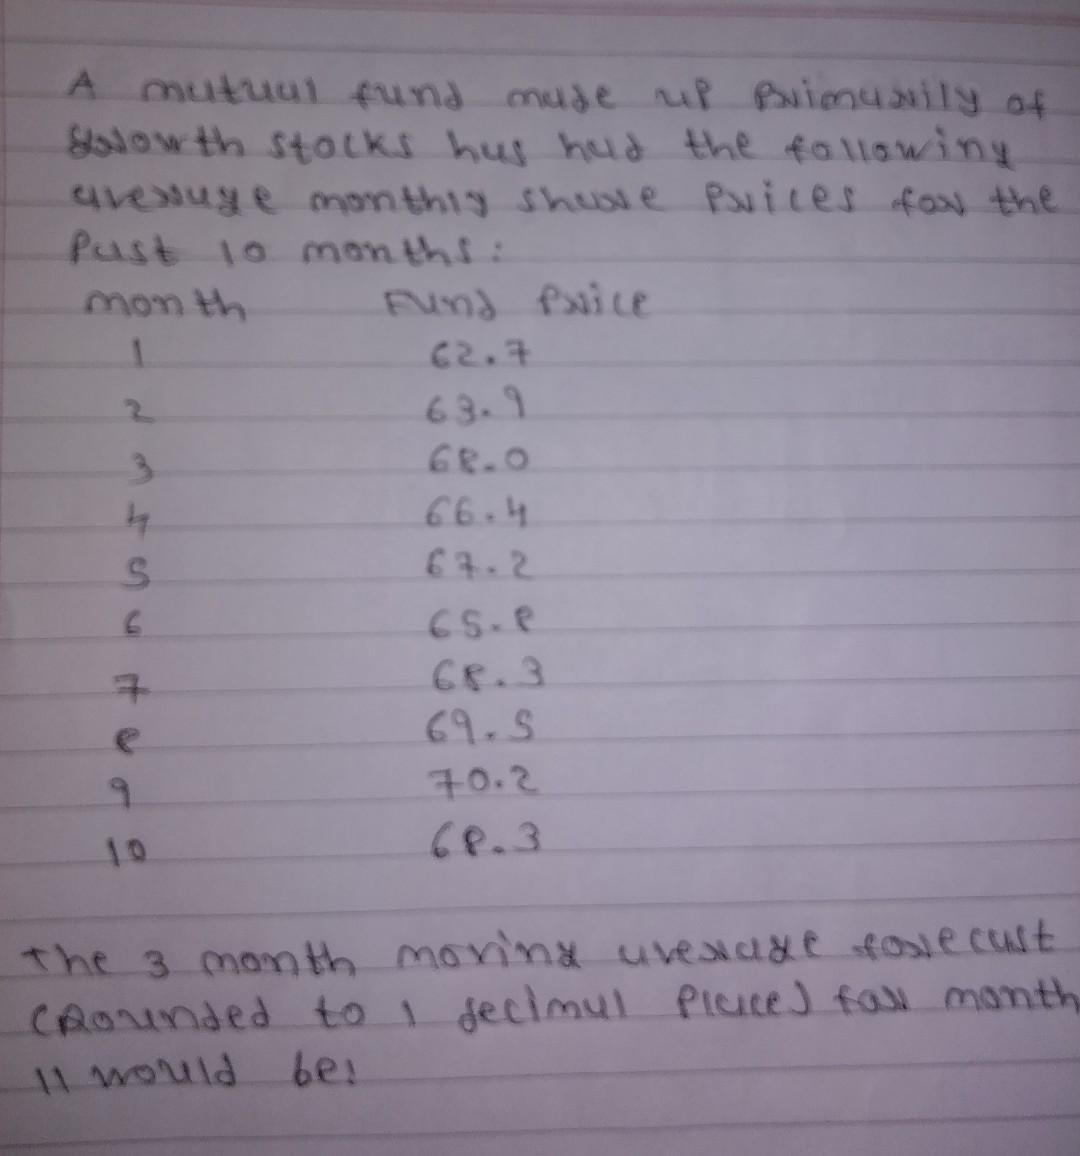 A mutual fund made up primarily of
growth stocks has had the following
average monthly share prices for the
Past 10 months:
month Fund Price
1 62.7
2 63.9
3 68.0
4 66.4
5 67.2
6 65.8
7 68.3
8 69.5
9 70.2
10 68.3
The 3 month moving average forecast
(Rounded to 1 decimal place) for month
11 would be: